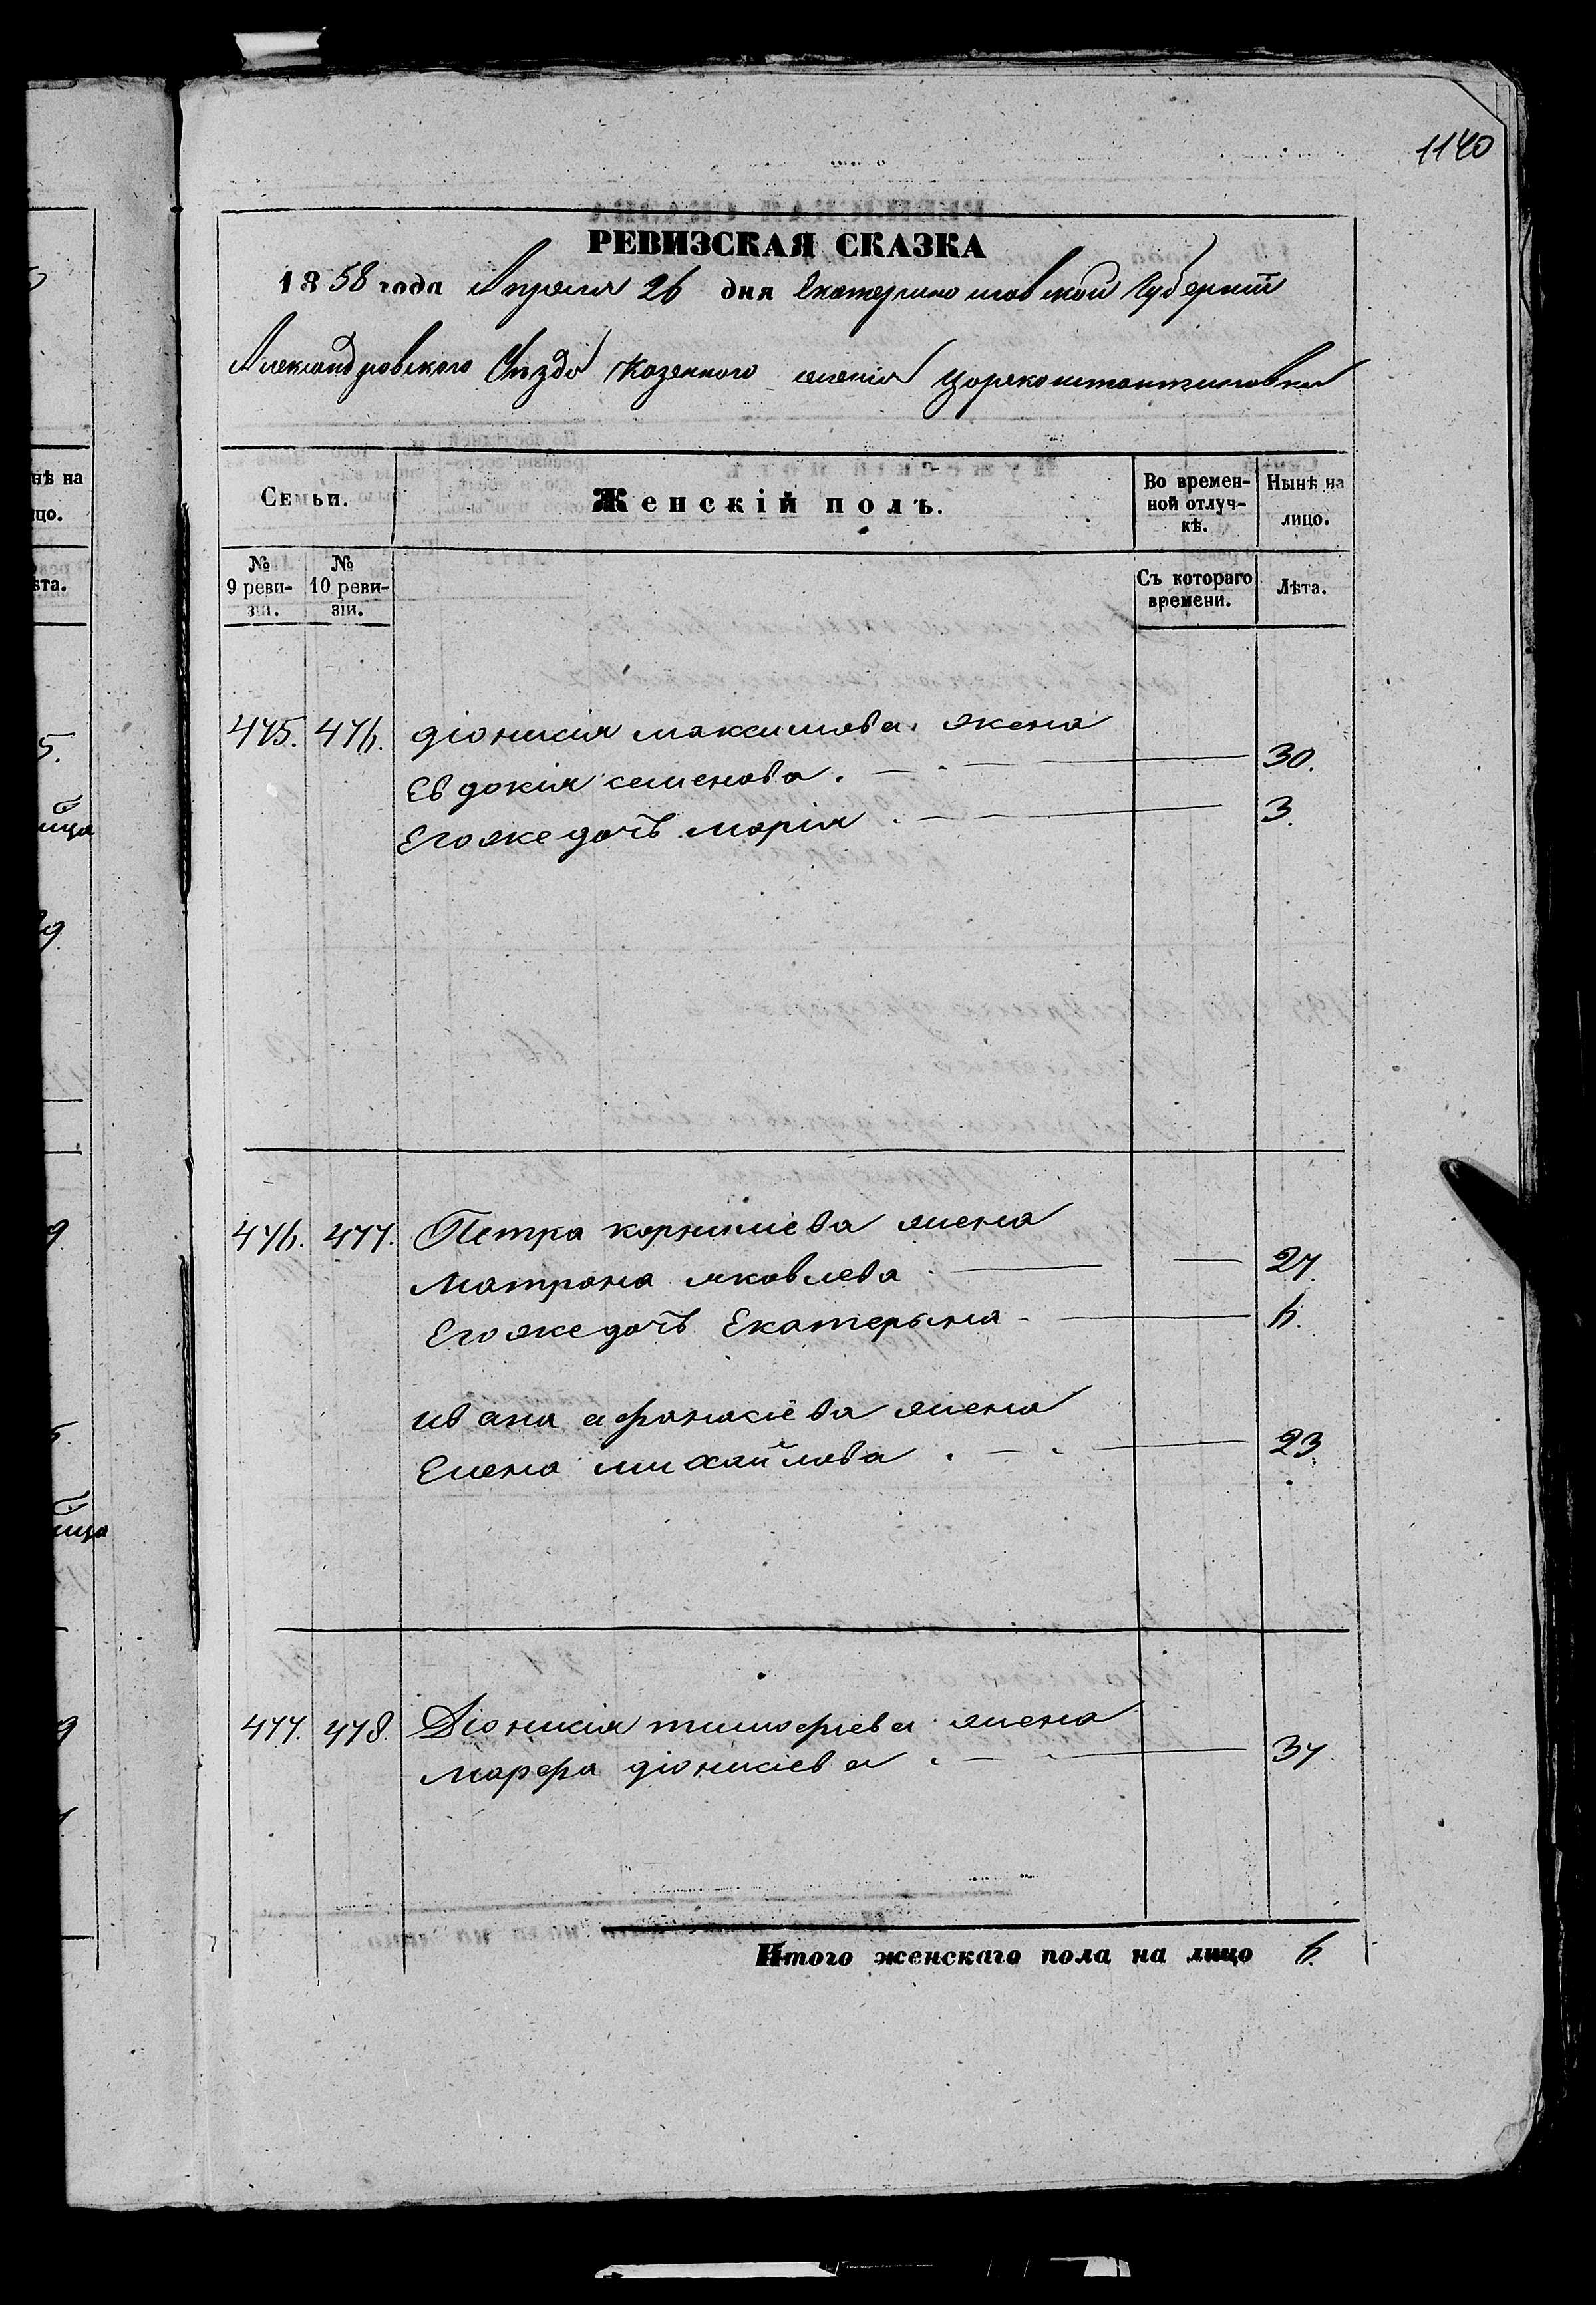 1140
РЕВИЗСКАЯ СКАЗКА
1858 года Апреля 26 дня Екатеринославской Губерніи
Александровского Уезда Казенного селенія Цареконстантиновки
Семьи.
Женскій полъ.
Во времен-
ной отлуч-
кѣ.
Нынѣ на
лицо.
№
9 реви-
зіи.
№
10 реви-
зіи.
Съ котораго
времени.
Лѣта.
475. 476. діонисія максимова жена
Евдокія семенова. 30.
Его же дочь марія. 3.
476. 477. Петра корнилиева жена
матрона яковлева 27.
Его же дочь Екатерына 6.
ивана афанасіева жена
Елена михайлова. 23
477. 478. Діонисія тимофиева жена
марфа діонисіева. 37
Итого женскаго пола на лицо 6.